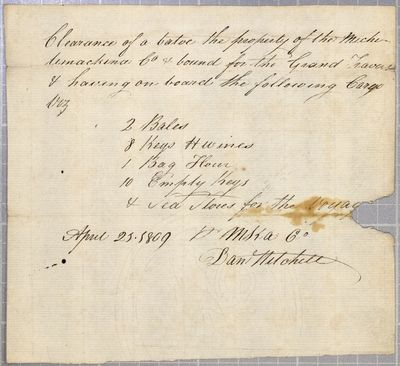 Clearance of a batoe the property of the Michi-
limackinac Co & bound for the Grand Traverse
& having on board the following Cargo
Viz
2 Bales
8 Kegs H wines
1 Bag Flour
10 Empty Kegs
& Sea Stores for the Voyag
April 25. 1809 Co
Dan Mitchell